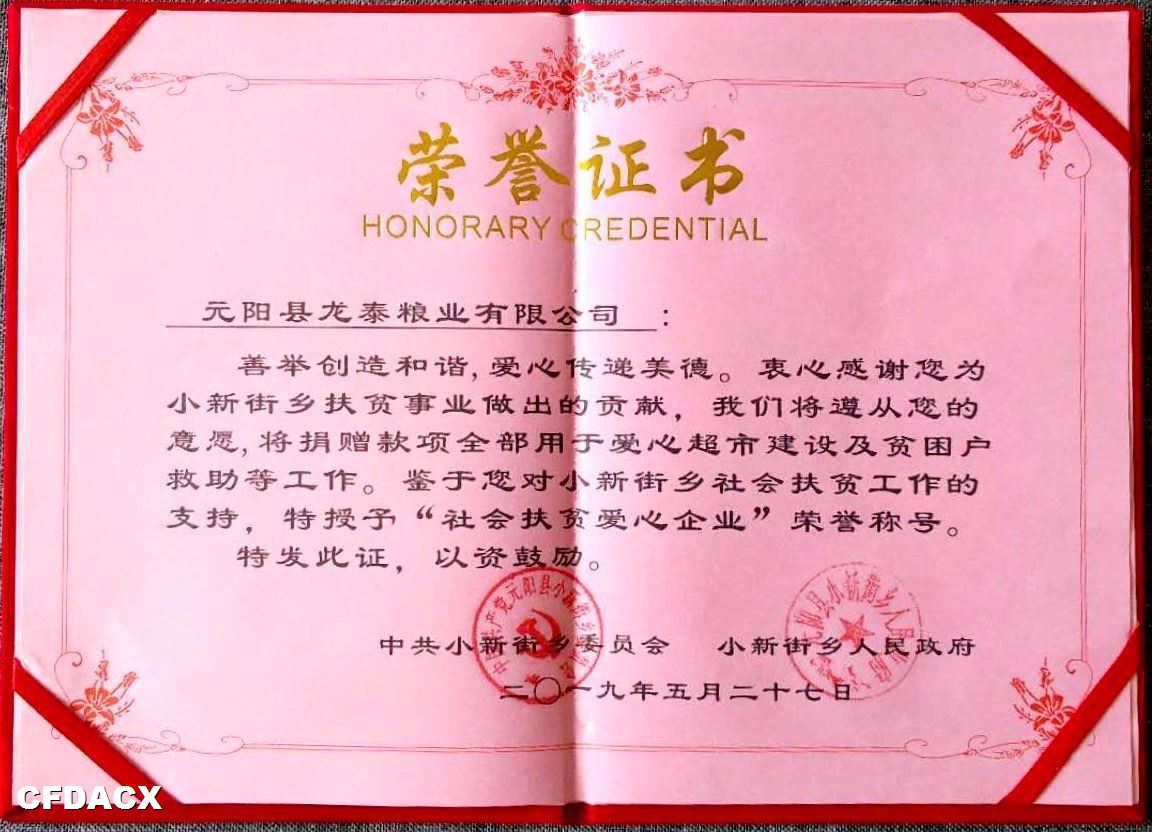 荣誉证书
HONORARY CREDENTIAL
元阳县龙泰粮业有限公司：
善举创造和谐,爱心传递美德。衷心感谢您为
小新街乡扶贫事业做出的贡献，我们将遵从您的
意愿,将捐赠款项全部用于爱心超市建设及贫困户
救助等工作。鉴于您对小新街乡社会扶贫工作的
支持，特授予“社会扶贫爱心企业”荣誉称号。
特发此证，以资鼓励。
中共小新街乡委员会 小新街乡人民政府
二〇一九年五月二十七日
CFDACX